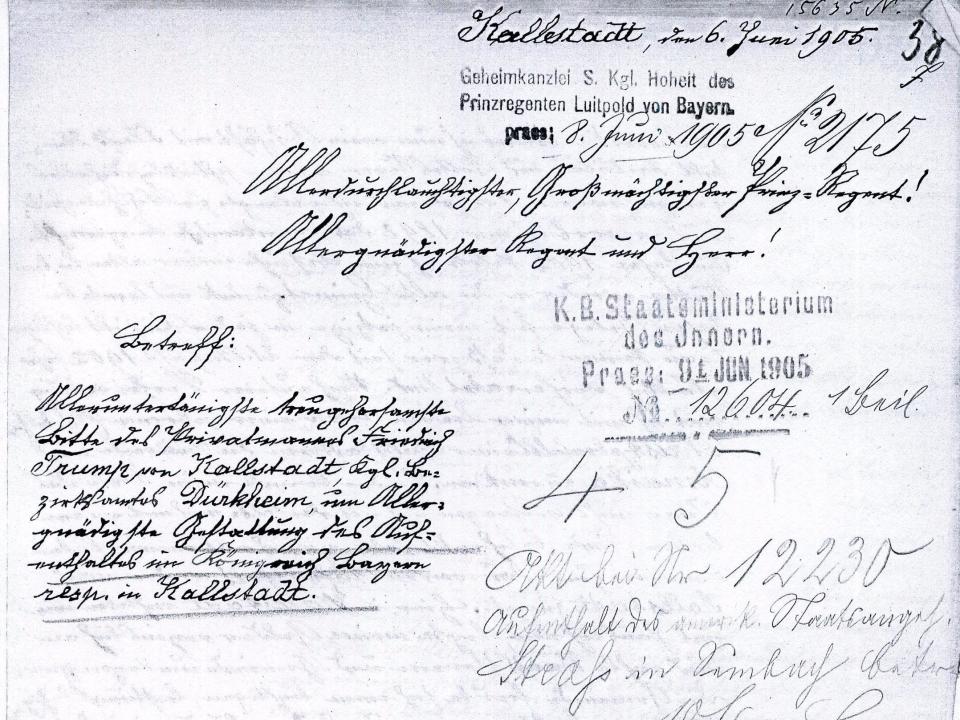 15635 N.
Kallstadt, den 6. Juni 1905.
38
Geheimkanzlei S. Kgl. Hoheit des
Prinzregenten Luitpold von Bayern.
praes: 8. Juni 1905 No 2175
Allerdurchlauchtigster, Großmächtigster Prinz-Regent!
Allergnädigster Regent und Herr!
K.B. Staatsministerium
des Innern.
Praes: 9 JUN. 1905
No. 12604. 1 Beil.
Betreff:
Alleruntertänigste treugehorsamste
Bitte des Privatmannes Friedrich
Trump von Kallstadt, Kgl. Be-
zirksamtes Dürkheim, um Aller-
gnädigste Gestattung des Auf-
enthaltes im Königreich Bayern
resp. in Kallstadt.
4 5
Akt bei Nr 12230
Aufenthalt des amerik. Staatsangeh.
in Sembach betr.